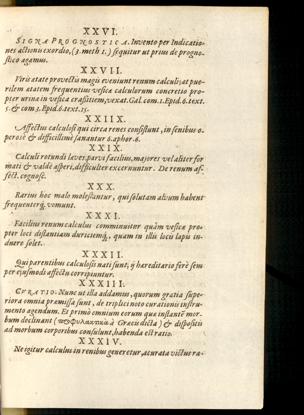 XXVI.
SIGNA PROGNOSTICA. Invento per Indicatio-
nes actionis exordio, (3. meth 1.) sequitur ut prius de progno-
stico agamus.
XXVII.
Virili ætate provectis magis eveniunt renum calculi; at pue-
rilem ætatem frequentius vesicæ calculorum concretio pro-
pter urinæ in vesica crassitiem, vexat. Gal. com. 1. Epid. 6. text.
5. & com 3. Epid. 6. text. 15.
XXIIX.
Affectus calculosi qui circa renes consistunt, in senibus o-
perosè & difficillimè sanantur 6. aphor. 6.
XXIX.
Calculi rotundi læves, parvi facilius, majores vel aliter for
mati & valdè asperi, difficulter excernuntur. De renum af-
fect. cognosc.
XXX.
Rarius hoc malo molestantur, qui solutam alvum habent
frequenterq́; vomunt.
XXXI.
Facilius renum calculus comminuitur quàm vesicæ pro-
pter loci distantiam duriciemq́;, quam in illis locis lapis in-
duere solet.
XXXII.
Qui parentibus calculosis nati sunt, ij hæreditario ferè sem-
per ejusmodi affectu corripiuntur.
XXXIII.
CURATIO. Nunc ut illa addamus, quorum gratia supe-
riora omnia præmissa sunt, de triplici noto curationis instru-
mento agendum. Et primò omnium eorum quæ instantē mor-
bum declinant (προφυλακτικὰ à Græcis dicta) & dispositis
ad morbum corporibus consulunt, habenda est ratio.
XXXIV.
Ne igitur calculus in renibus generetur, accurata victus ra-